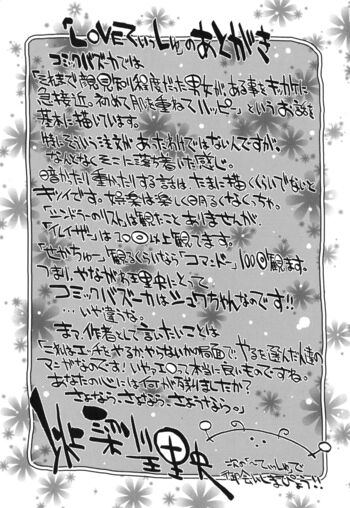 「LOVEてぃっしゅ」のあとがき
コミックバズーカでは
「これまで顔見知り程度だった男女が、ある事をきっかけに
急接近。初めて肌を重ねてハッピー」というお話を
基本に描いています。
特にそういう注文が あったわけではないんですが。
なんとなくそこに落ち着いた感じ。
暗かったり重かったりする話は、たまに描くくらいでないと
キツイです。娯楽は楽しく明るくなくちゃ。
「シンドラーのリスト」は観たこと ありませんが
「イレイザー」は100回以上観てます。
「せかちゅー」観るくらいなら「コマンドー」100回観ます。
つまり、やながわ理央にとって
コミックバズーカはシュワちゃんなのです!!
…いや違うな。
まァ、作者として言いたいことは
「これはエッチをやるかやらないかの局面で、やるを選んだ人達の
マンガなのです!いやァエロって本当に良いものですね。
あなたの心には何が残りましたか?
さよなら、さよなら、さようなら。」
理央
次の「てぃっしゅ」で
お会いしましょう!!